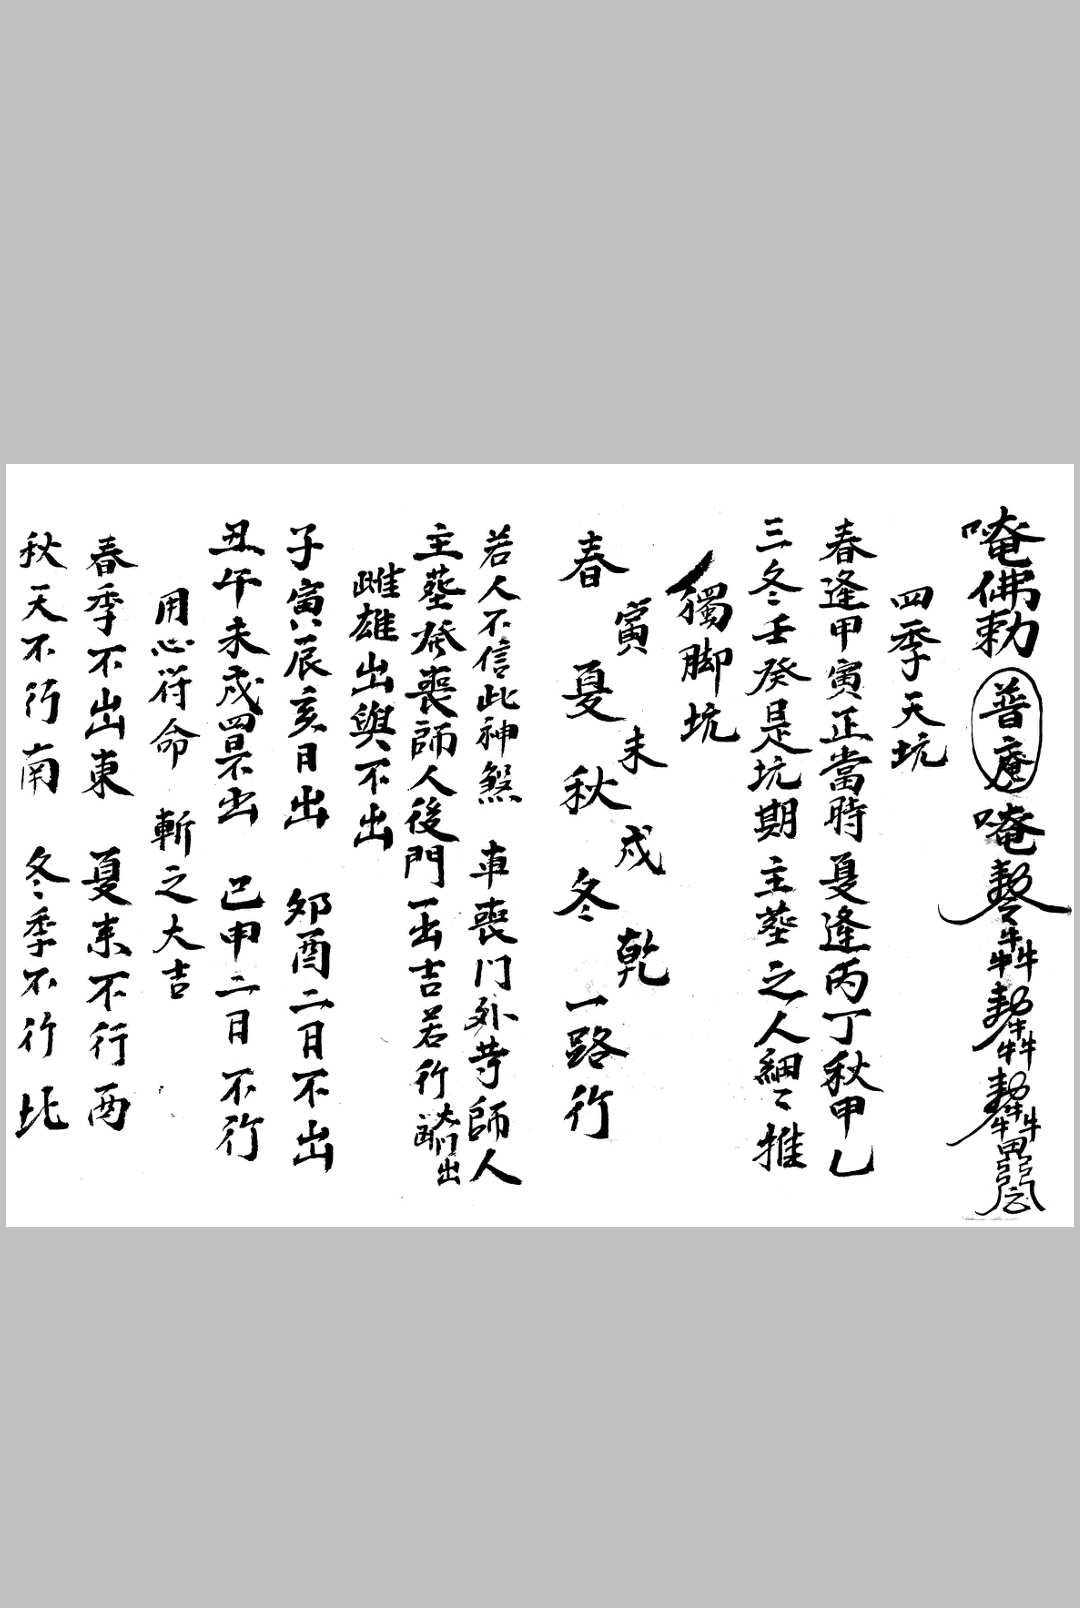 唵佛勅 普庵 唵
四季天坑
春逢甲寅正當時 夏逢丙丁秋甲乙
三冬壬癸是坑期 主塟之人細々推
獨脚坑
寅 未 戌 乾
春 夏 秋 冬 一路行
若人不信此神煞 車喪门外等師人
主塟發喪師人後門一出吉若行出
雌雄出與不出
子寅辰亥日出 夘酉二日不出
丑午未戌四日不出 巳申二日不行
用心符命 斬之大吉
春季不出東 夏末不行西
秋天不行南 冬季不行北